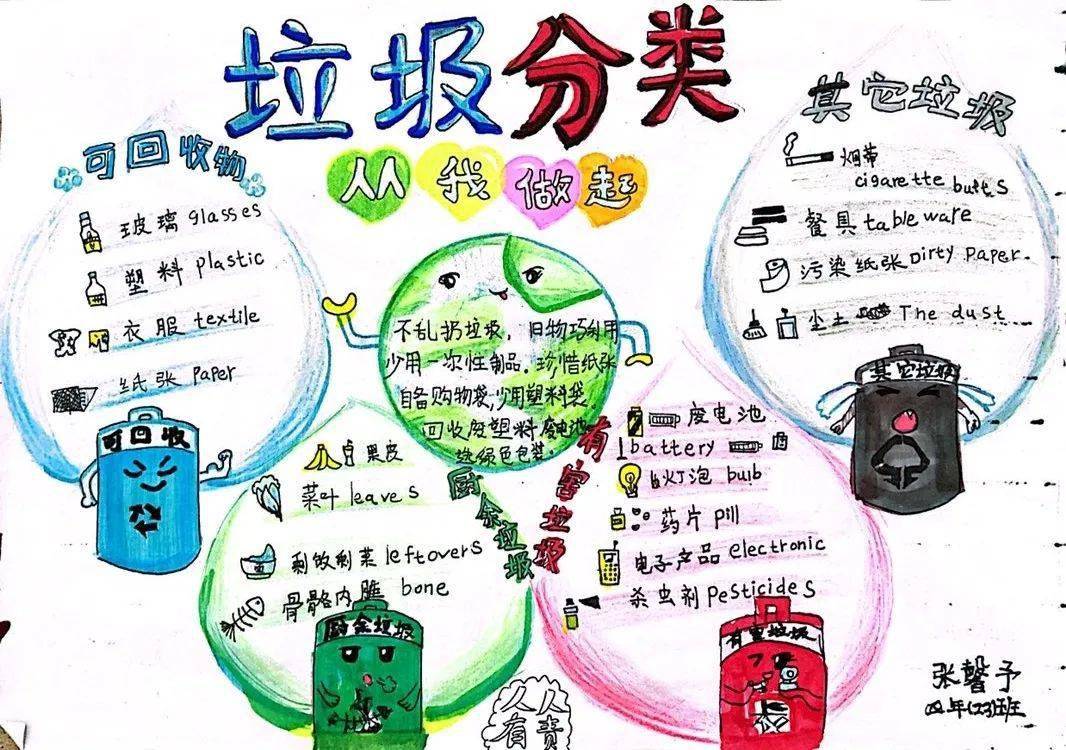 垃圾分类
从我做起
可回收物
玻璃 glasses
塑料 plastic
衣服 textile
纸张 paper
可回收
不乱扔垃圾，旧物巧利用
少用一次性制品。珍惜纸张
自备购物袋，少用塑料袋
回收废塑料废电池
绿色包装。
其它垃圾
烟蒂
cigarette butts
餐具 tableware
污染纸张 Dirty paper.
尘土 The dust
其它垃圾
厨余垃圾
果皮
菜叶 leaves
剩饭剩菜 leftovers
骨骼内脏 bone
厨余垃圾
有害垃圾
废电池
battery
灯泡 bulb
药片 pill
电子产品 electronic
杀虫剂 Pesticides
有害垃圾
人人
有责
张馨予